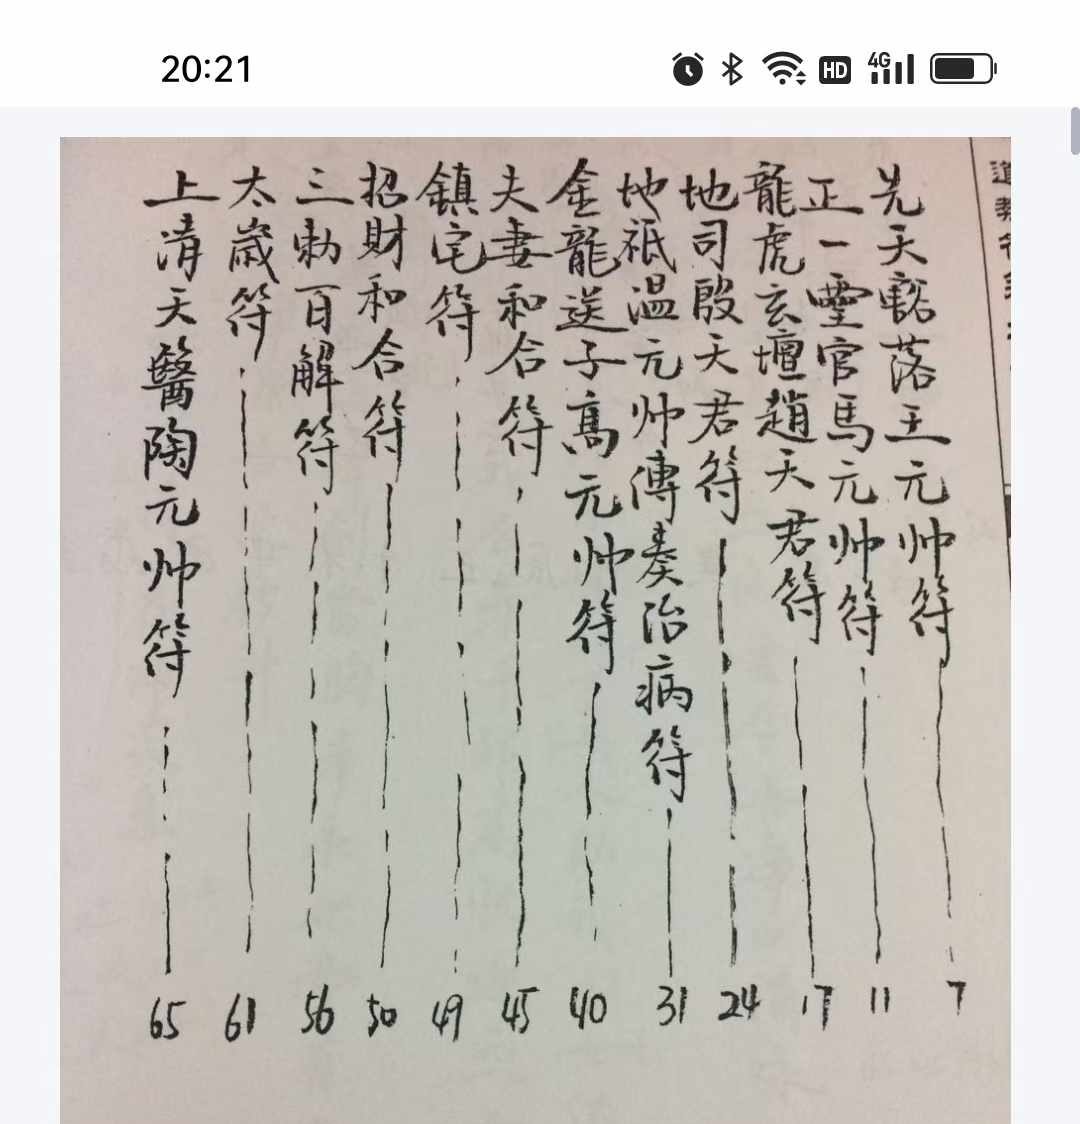 20:21
HD
4G
先天豁落王元帅符 7
正一靈官馬元帅符 11
龍虎玄壇趙天君符 17
地司殷天君符 24
地祇温元帅傳奏治病符 31
金龍送子高元帅符 40
夫妻和合符 45
鎮宅符 49
招財和合符 50
三勅百解符 56
太歲符 61
上清天醫陶元帅符 65